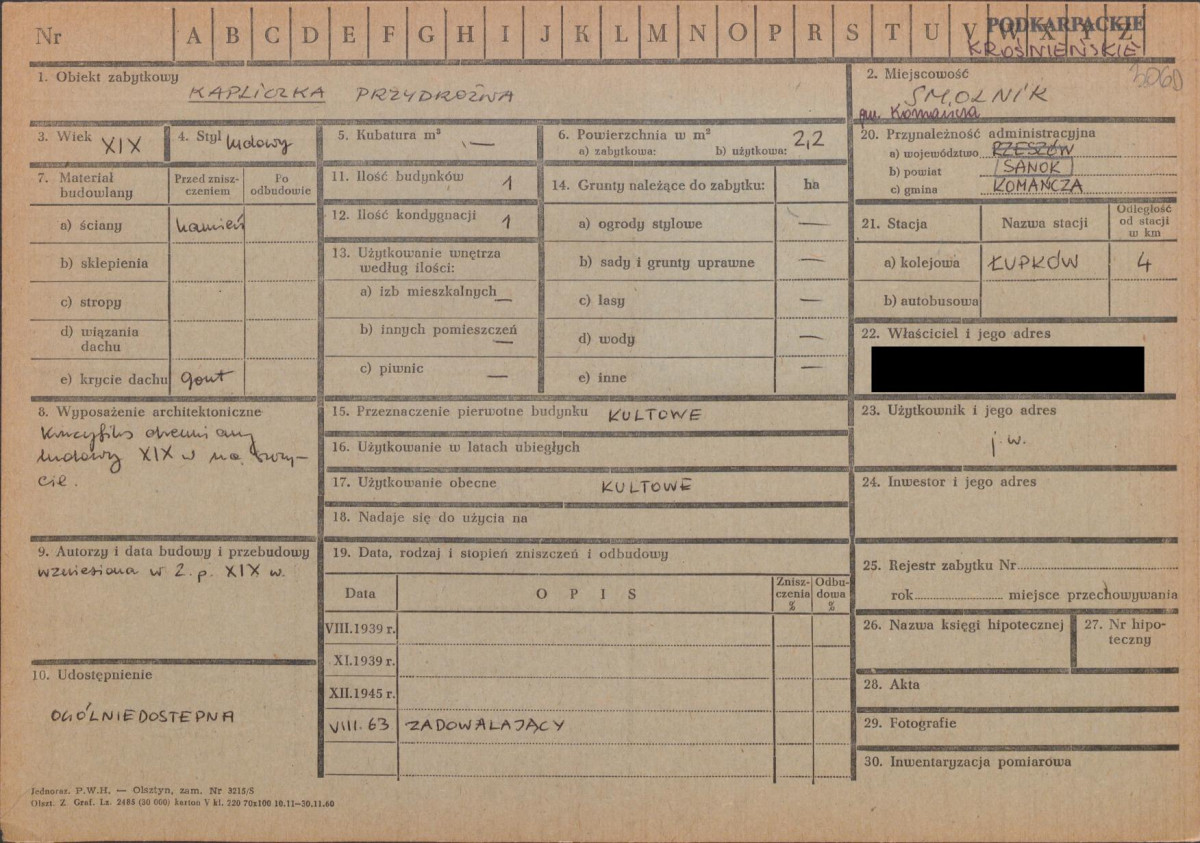 Nr A B C D E F G H I J K L M N O P R S T U V W X Y Z
PODKARPACKIE
KROŚNIEŃSKIE
3060
1. Obiekt zabytkowy
KAPLICZKA PRZYDROŻNA
2. Miejscowość
SMOLNIK
gm. Komańcza
3. Wiek XIX
4. Styl ludowy
5. Kubatura m³ —
6. Powierzchnia w m² 2,2
a) zabytkowa: b) użytkowa:
7. Materiał budowlany
Przed znisz-
czeniem
Po
odbudowie
a) ściany kamień
b) sklepienia
c) stropy
d) wiązania
dachu
e) krycie dachu gont
8. Wyposażenie architektoniczne
Krucyfiks drewniany
ludowy XIX w na szczy-
cie.
9. Autorzy i data budowy i przebudowy
wzniesiona w 2. p. XIX w.
10. Udostępnienie
OGÓLNIEDOSTEPNA
11. Ilość budynków 1
12. Ilość kondygnacji 1
13. Użytkowanie wnętrza
według ilości:
a) izb mieszkalnych —
b) innych pomieszczeń —
c) piwnic —
14. Grunty należące do zabytku: ha
a) ogrody stylowe —
b) sady i grunty uprawne —
c) lasy —
d) wody —
e) inne —
15. Przeznaczenie pierwotne budynku KULTOWE
16. Użytkowanie w latach ubiegłych
17. Użytkowanie obecne KULTOWE
18. Nadaje się do użycia na
19. Data, rodzaj i stopień zniszczeń i odbudowy
Data OPIS
Znisz-
czenia
%
Odbu-
dowa
%
VIII.1939 r.
XI.1939 r.
XII.1945 r.
VIII. 63 ZADOWALAJĄCY
20. Przynależność administracyjna
a) województwo RZESZÓW
b) powiat SANOK
c) gmina KOMAŃCZA
21. Stacja Nazwa stacji
Odległość
od stacji
w km
a) kolejowa ŁUPKÓW 4
b) autobusowa
22. Właściciel i jego adres
23. Użytkownik i jego adres
j. w.
24. Inwestor i jego adres
25. Rejestr zabytku Nr
rok miejsce przechowywania
26. Nazwa księgi hipotecznej
27. Nr hipo-
teczny
28. Akta
29. Fotografie
30. Inwentaryzacja pomiarowa
Jednoraz. P.W.H. — Olsztyn, zam. Nr 3215/S
Olszt. Z. Graf. Lz. 2485 (30 000) karton V kl. 220 70x100 10.11—30.11.60